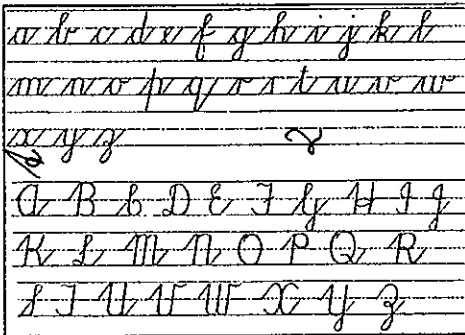 a b c d e f g h i j k l
m n o p q r s t u v w
x y z r
A B C D E F G H I J
K L M N O P Q R
S T U V W X Y Z